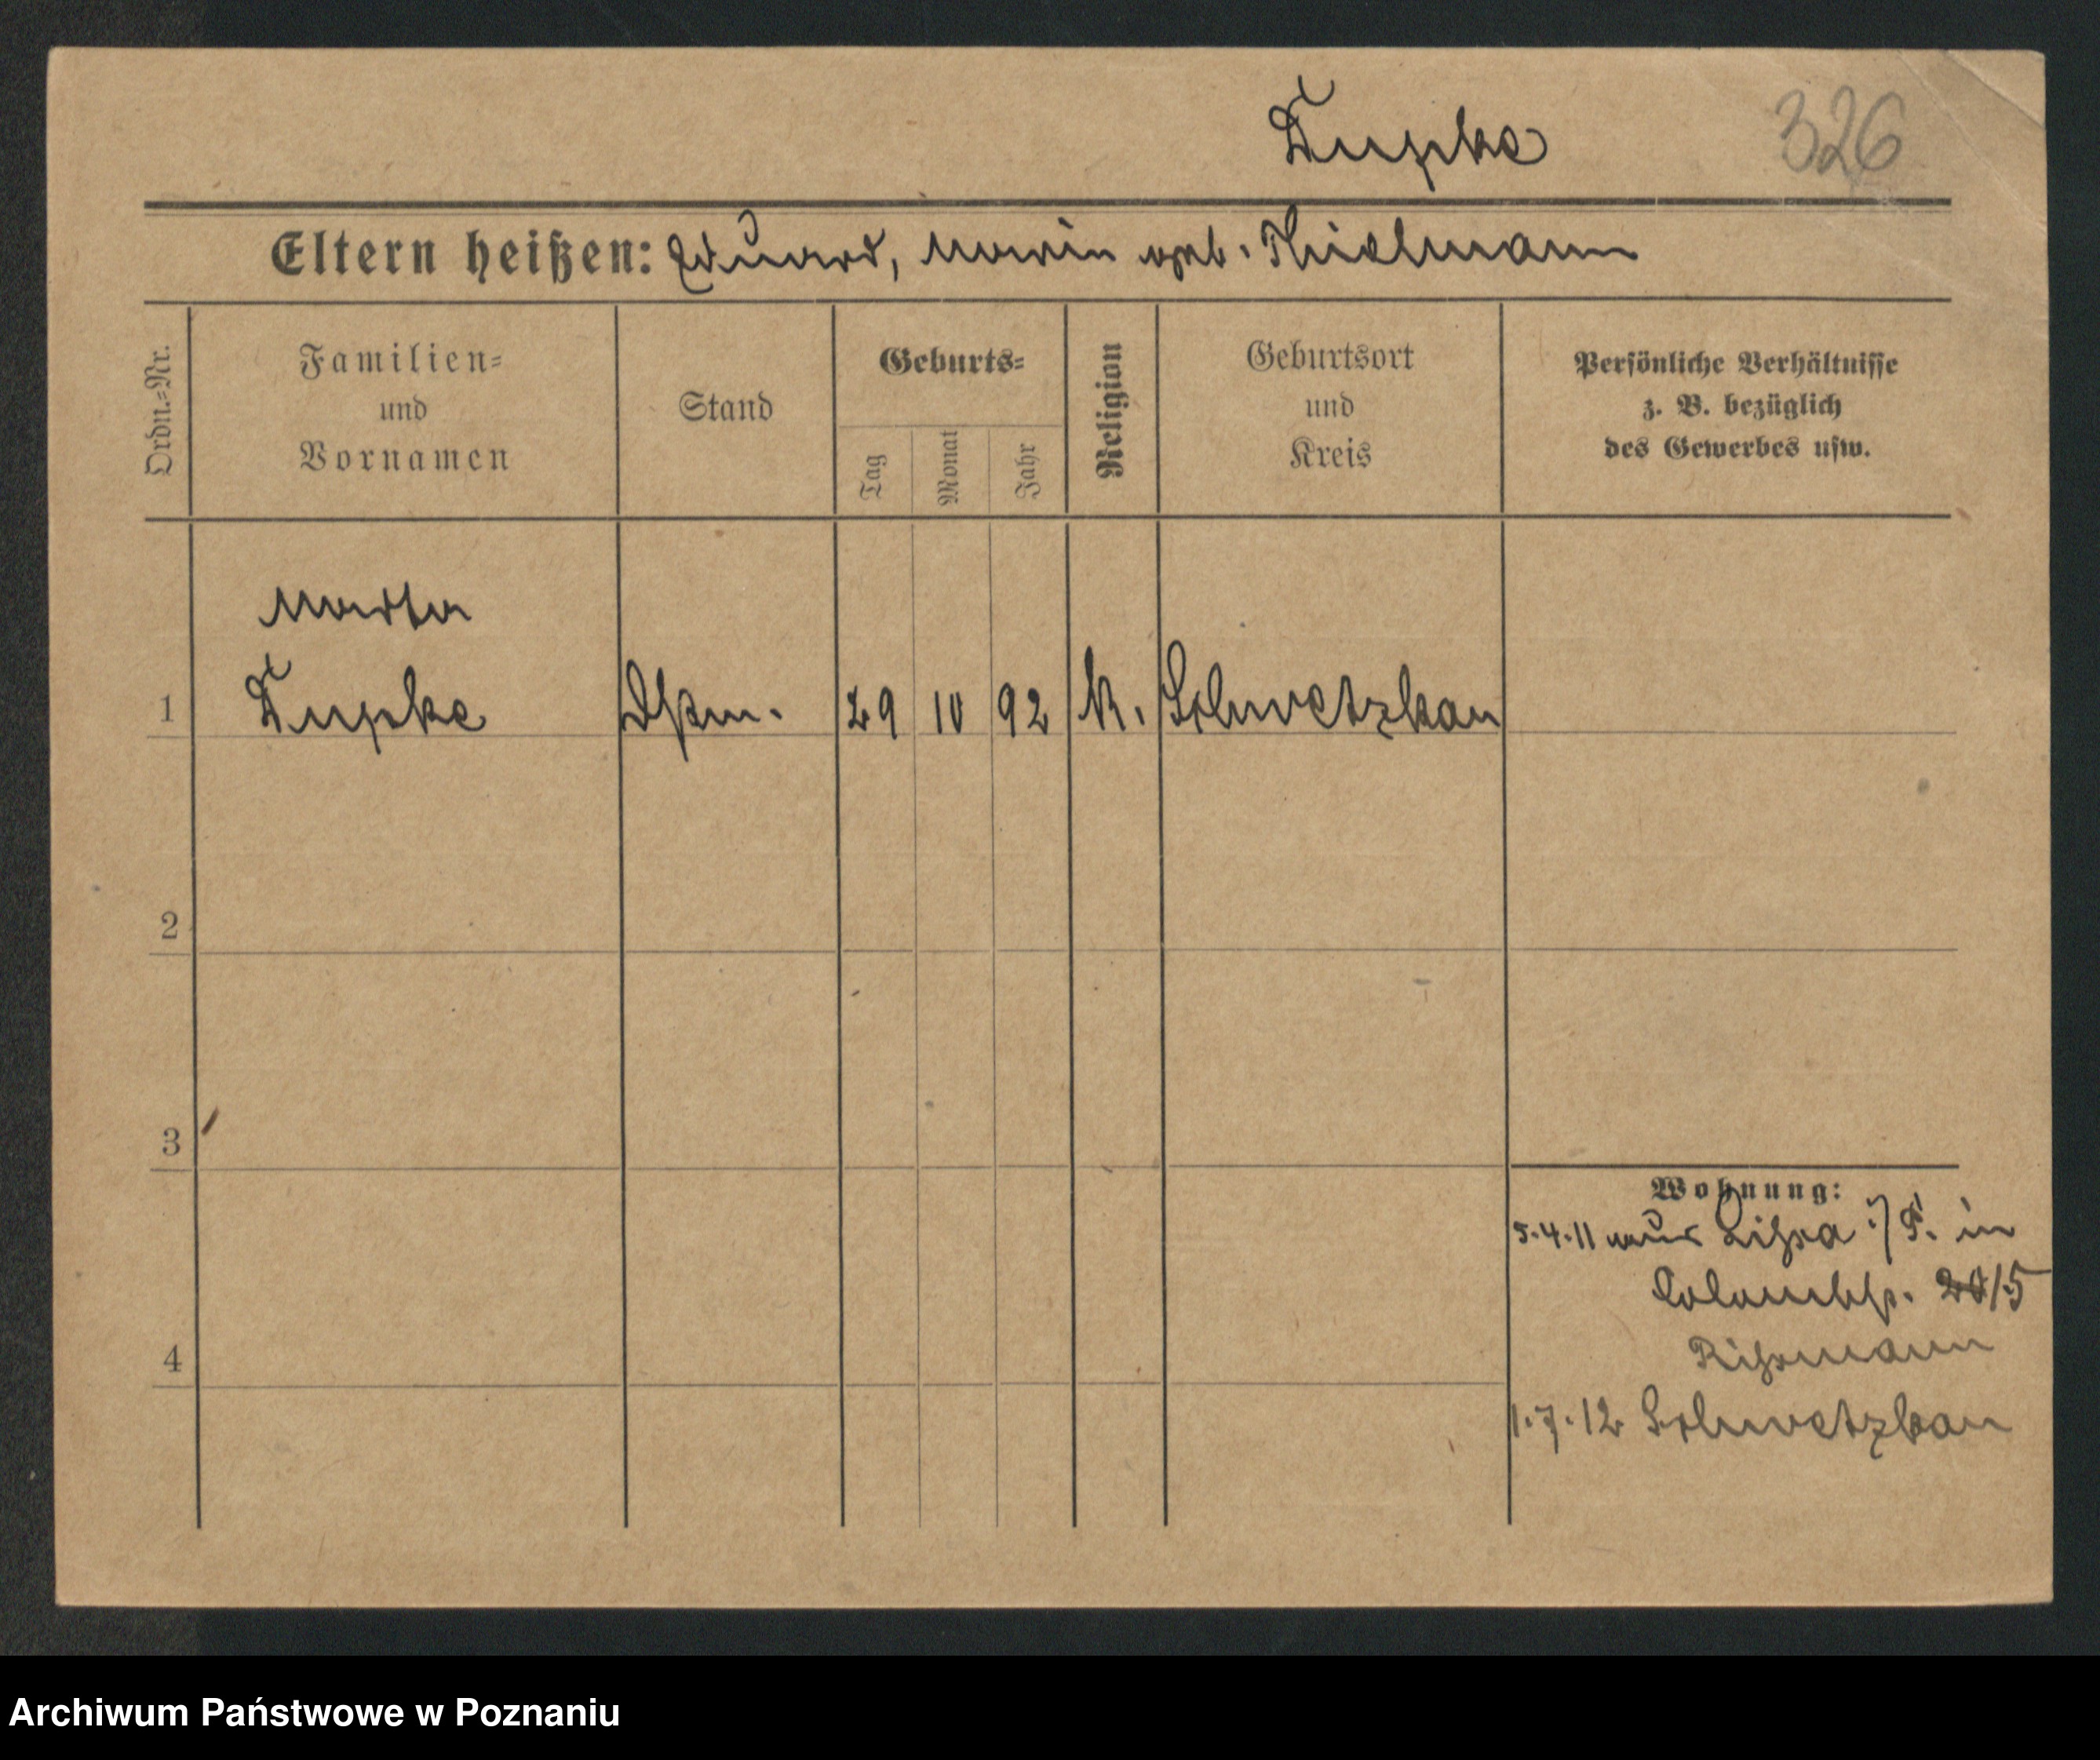 Tupke
326
Eltern heißen: Eduard, Maria geb. Thielmann
Ordn.-Nr.
Familien-
und
Vornamen
Stand
Geburts-
Tag
Monat
Jahr
Religion
Geburtsort
und
Kreis
Persönliche Verhältnisse
z. B. bezüglich
des Gewerbes usw.
Martha
1 Tupke 29 10 92 K. Schwetzkau
2
3
4
Wohnung:
5.4.11 aus Lissa i/P. in
Colombstr. 20/5
Rissmann
1.7.12 Schwetzkau
Archiwum Państwowe w Poznaniu